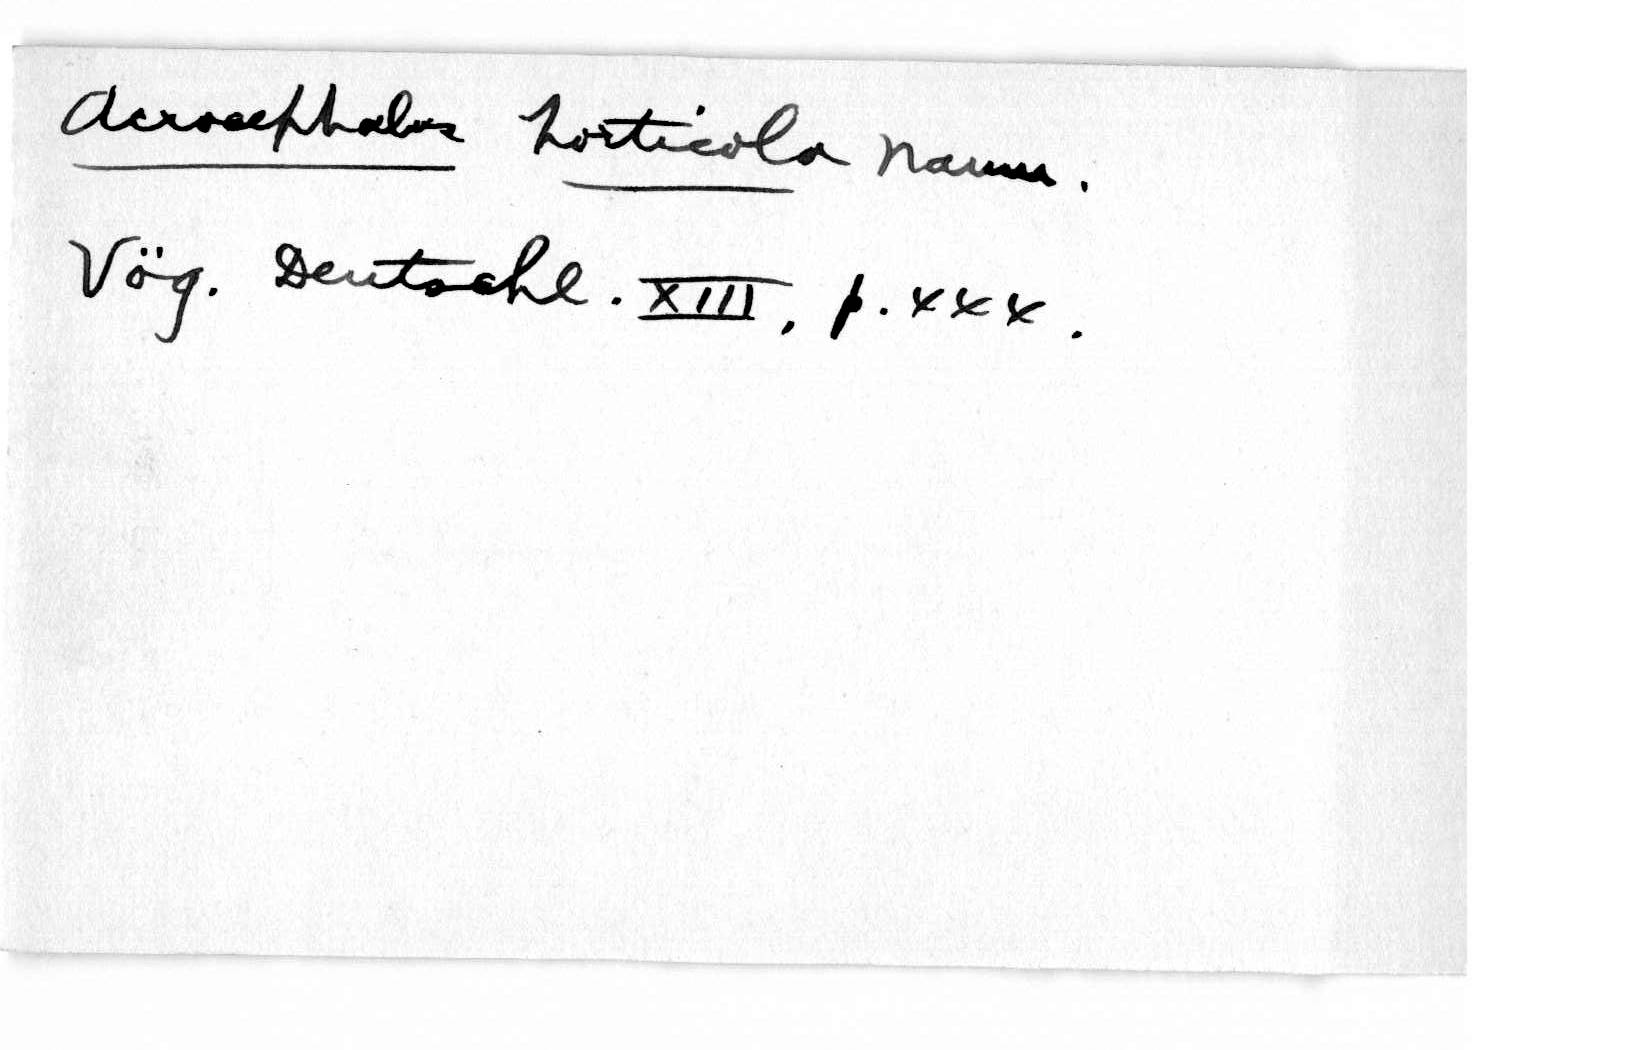 Acrocephalus horticola Naum.
Vög. Deutschl. XIII, p. xxx.